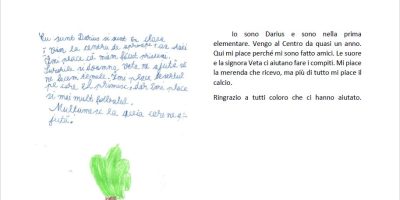 Eu sunt Darius si sunt in clasa
I. Vin la centru de aproape un an.
Imi place că mam făcut prieteni.
Surorile si doamna Veta ne ajută să
ne facem temele. Imi place
pe care il primesc, dar imi place
si mai mult fotbalul.
Multumesc la aceia care ne a-
jută!
Io sono Darius e sono nella prima
elementare. Vengo al Centro da quasi un anno.
Qui mi piace perché mi sono fatto amici. Le suore
e la signora Veta ci aiutano fare i compiti. Mi piace
la merenda che ricevo, ma più di tutto mi piace il
calcio.
Ringrazio a tutti coloro che ci hanno aiutato.